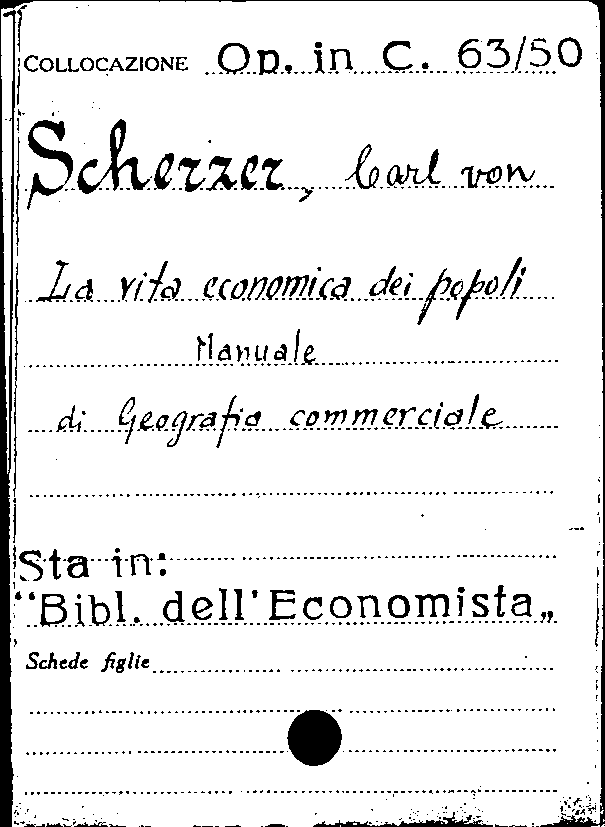 COLLOCAZIONE Op. in C. 63/50
Scherzer, Carl von
La vita economica dei popoli
Manuale
di Geografia commerciale
Sta in:
"Bibl. dell'Economista„
Schede figlie